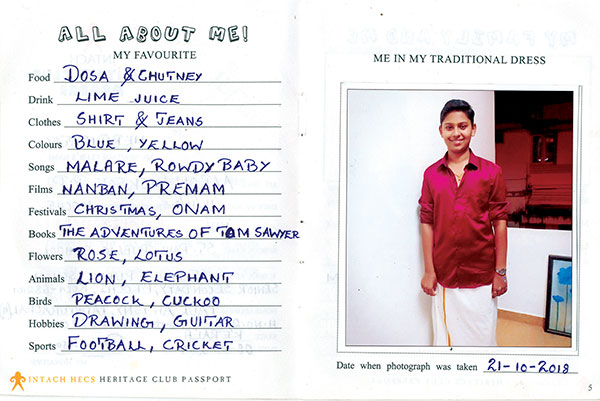 ALL ABOUT ME!
MY FAVOURITE
Food DOSA & CHUTNEY
Drink LIME JUICE
Clothes SHIRT & JEANS
Colours BLUE, YELLOW
Songs MALARE, ROWDY BABY
Films NANBAN, PREMAM
Festivals CHRISTMAS, ONAM
Books THE ADVENTURES OF TOM SAWYER
Flowers ROSE, LOTUS
Animals LION, ELEPHANT
Birds PEACOCK, CUCKOO
Hobbies DRAWING, GUITAR
Sports FOOTBALL, CRICKET
INTACH HECS HERITAGE CLUB PASSPORT
ME IN MY TRADITIONAL DRESS
Date when photograph was taken 21-10-2018
5